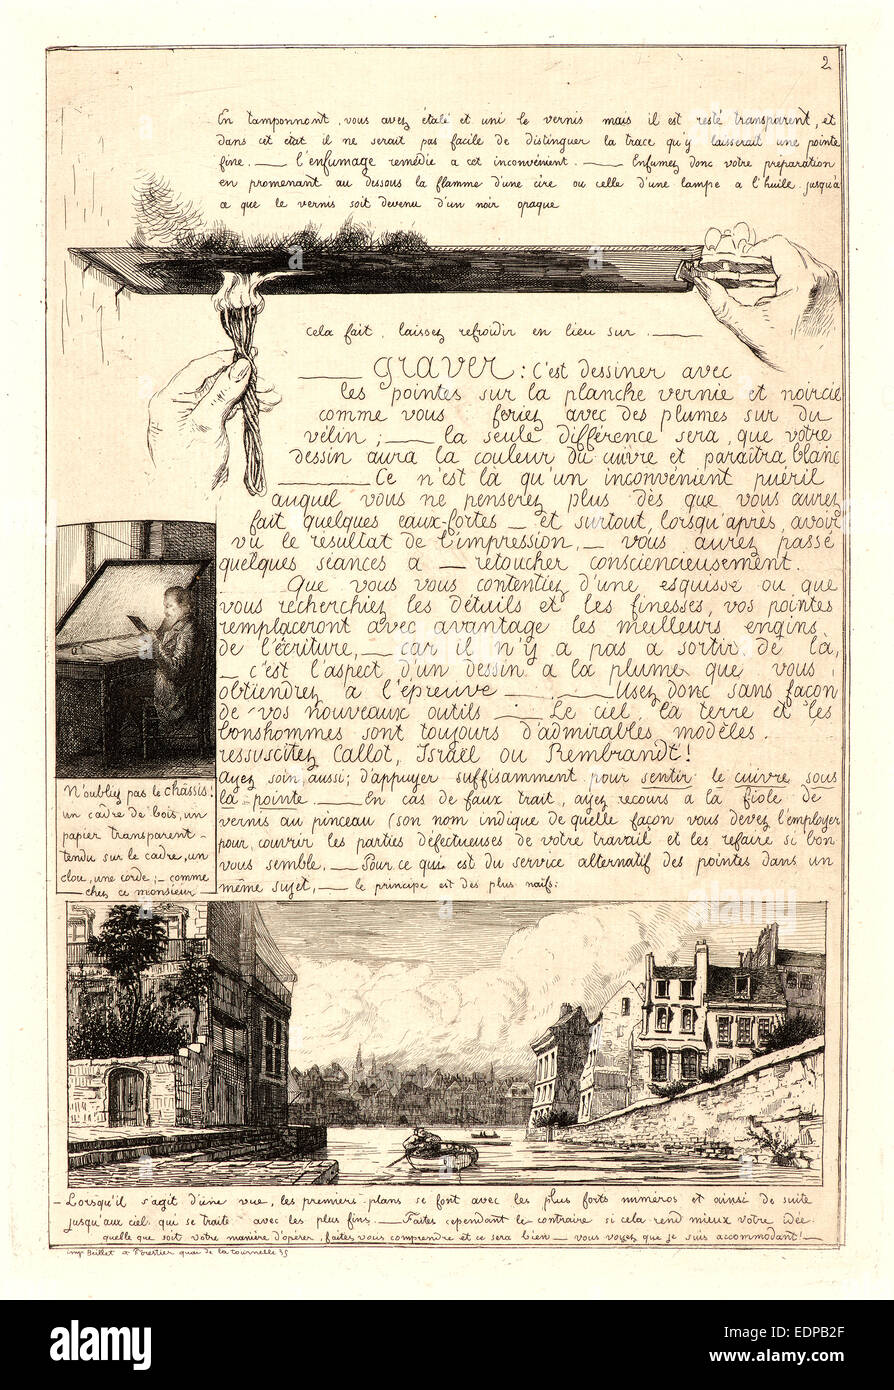 2
En tamponnant, vous avez étalé et uni le vernis mais il est resté transparent, et
dans cet état il ne serait pas facile de distinguer la trace qu'y laisserait une pointe
fine. — l'enfumage remédie a cet inconvénient. — Enfumez donc votre préparation
en promenant au dessous la flamme d'une cire ou celle d'une lampe a l'huile jusqu'a
a que le vernis soit devenu d'un noir opaque
Cela fait, laissez refroidir en lieu sur. —
— Graver : C'est dessiner avec
les pointes sur la planche vernie et noircie
comme vous feriez avec des plumes sur du
vélin ; — la seule différence sera, que votre
dessin aura la couleur du cuivre et paraitra blanc
— Ce n'est là qu'un inconvénient puéril
auquel vous ne penserez plus dès que vous aurez
fait quelques eaux-fortes — et surtout, lorsqu'après, avoir
vu le résultat de l'impression, — vous aurez passé
quelques séances a — retoucher consciencieusement.
Que vous vous contentiez d'une esquisse ou que
vous recherchiez les détails et les finesses, vos pointes
remplaceront avec avantage les meilleurs engins
de l'écriture, — car il n'y a pas a sortir de là,
— c'est l'aspect d'un dessin a la plume que vous
obtiendrez a l'épreuve — Usez donc sans façon
de vos nouveaux outils — Le ciel la terre et les
bonshommes sont toujours d'admirables modèles.
ressuscitez Callot, Israël ou Rembrandt !
Ayez soin, aussi; d'appuyer suffisamment pour sentir le cuivre sous
la pointe — En cas de faux trait, ayez recours a la fiole de
vernis au pinceau (son nom indique de quelle façon vous devez l'employer
pour couvrir les parties défectueuses de votre travail et les refaire si bon
vous semble. — Pour ce qui est du service alternatif des pointes dans un
même sujet, — le principe est des plus naïfs:
N'oubliez pas le châssis!
un cadre de bois, un
papier transparent —
tendu sur le cadre, un
clou, une corde; — comme
chez ce monsieur
— Lorsqu'il s'agit d'une vue, les premiers plans se font avec les plus forts numéros et ainsi de suite
jusqu'aux ciel qui se traite avec les plus fins. — Faites cependant le contraire si cela rend mieux votre idée.
quelle que soit votre manière d'opérer, faites vous comprendre et ce sera bien — vous voyez que je suis accommodant! —
imp. Beillet et Forestier quai de la tournelle 35
alamy
alamy
Image ID: EDPB2F
www.alamy.com